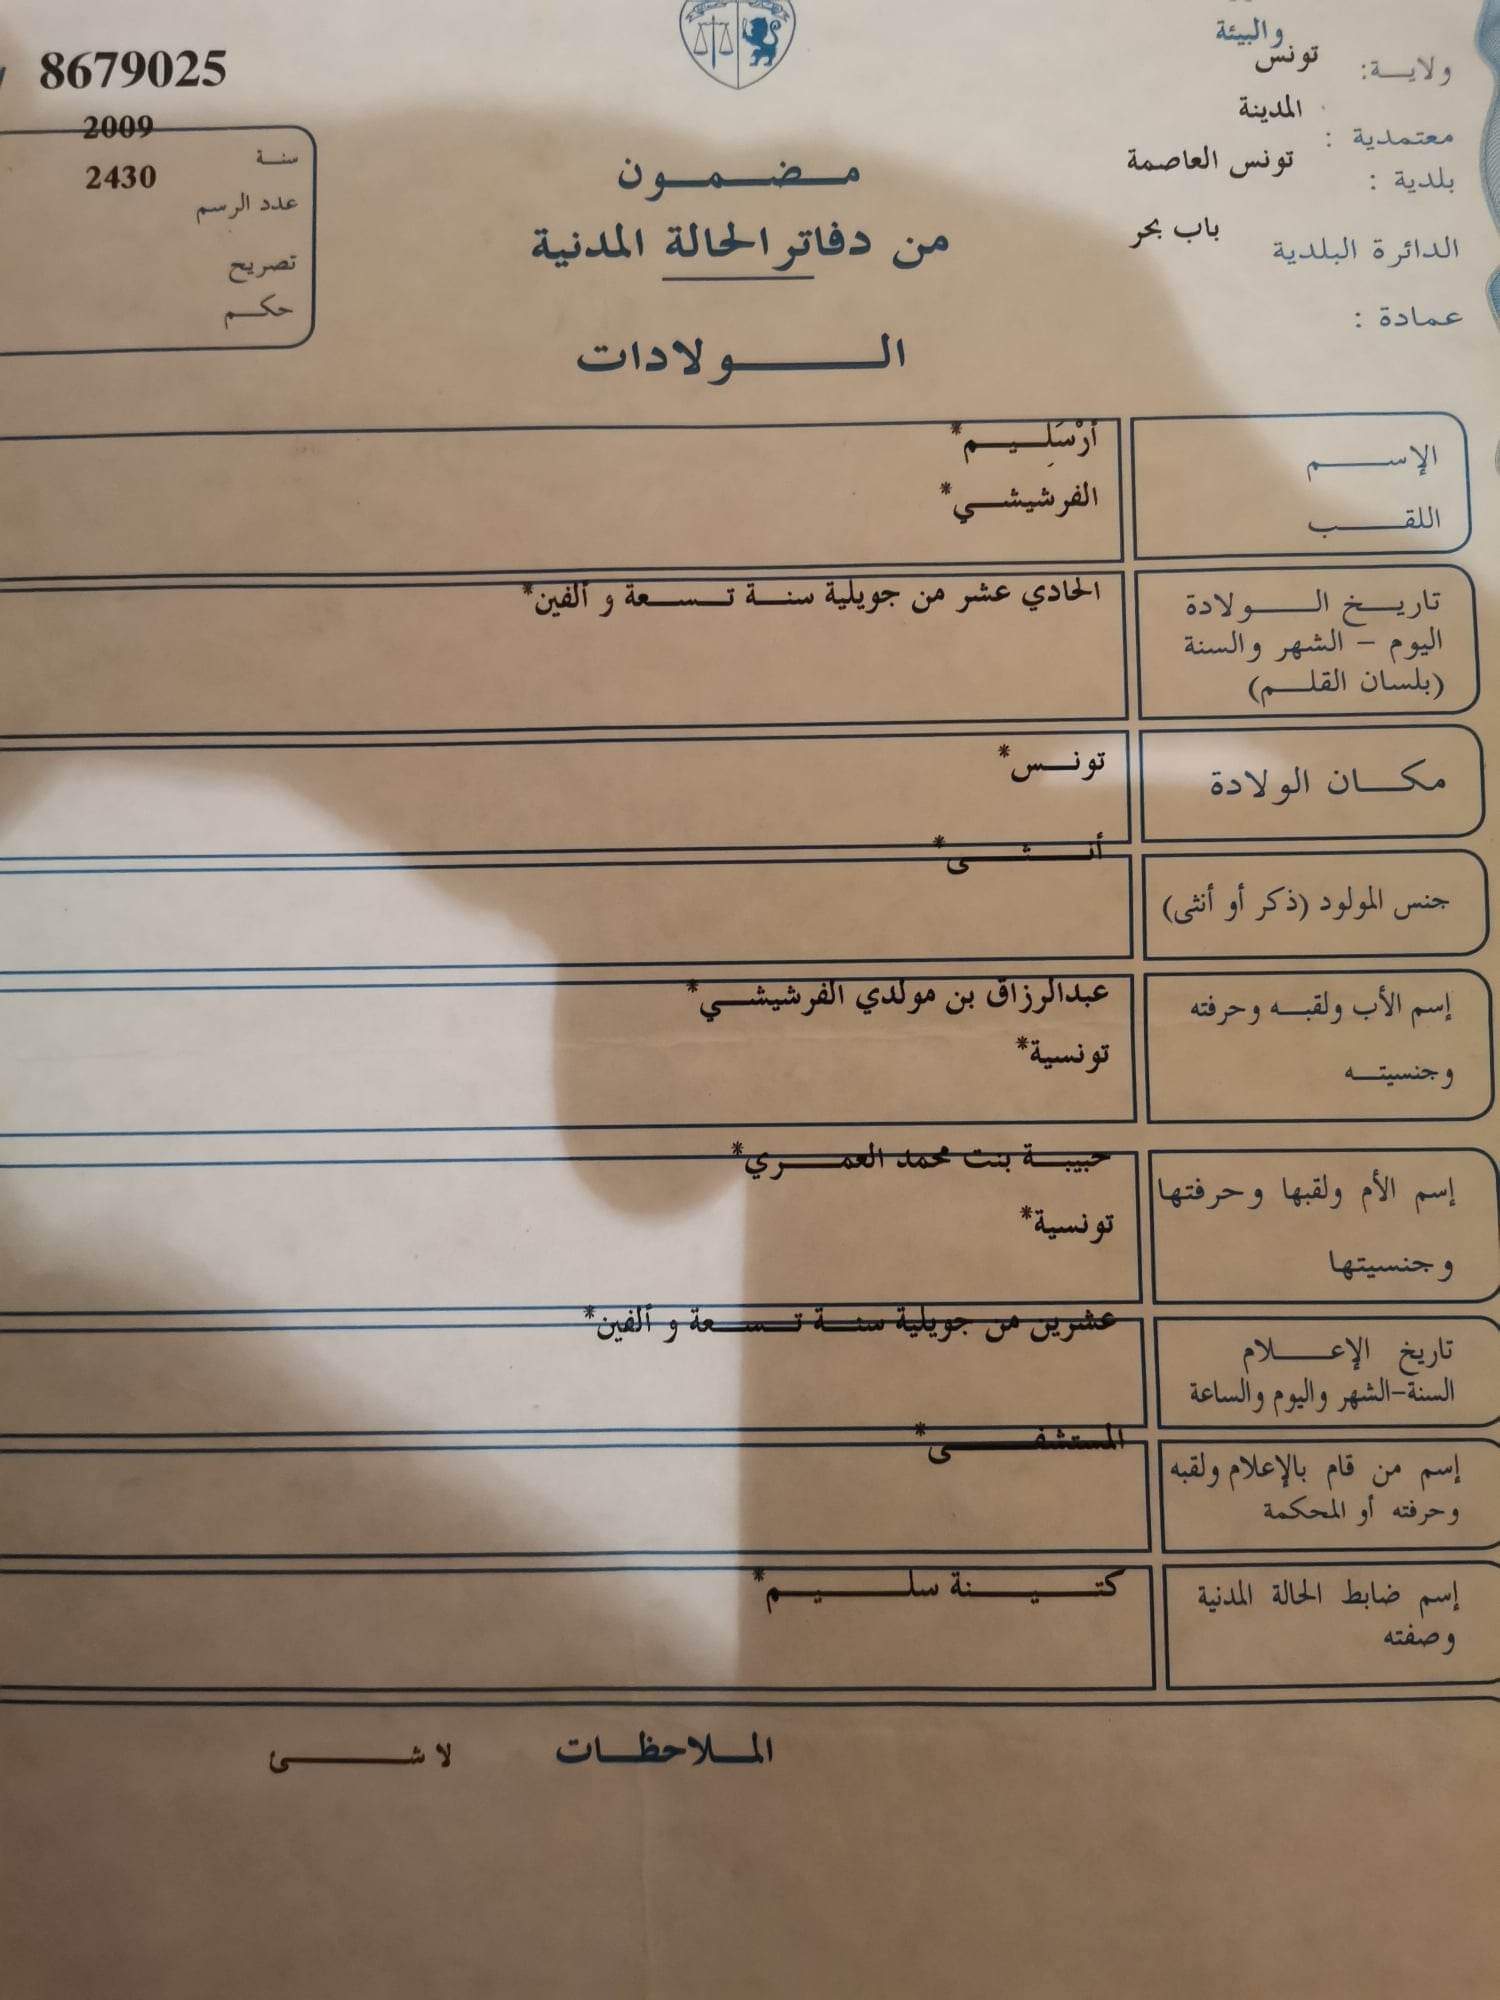 والبيئة
ولاية: تونس
المدينة
معتمدية :
بلدية : تونس العاصمة
الدائرة البلدية باب بحر
عمادة :
8679025
2009
سنة
2430
عدد الرسم
تصريح
حكم
مضمون
من دفاتر الحالة المدنية
الولادات
الإسم أرْسَلِيم*
اللقب الفرشيشي*
تاريخ الولادة الحادي عشر من جويلية سنة تسعة و ألفين*
اليوم - الشهر والسنة
(بلسان القلم)
مكان الولادة تونس*
جنس المولود (ذكر أو أنثى) أنثى*
إسم الأب ولقبه وحرفته عبدالرزاق بن مولدي الفرشيشي*
وجنسيته تونسية*
إسم الأم ولقبها وحرفتها حبيبة بنت محمد العمري*
وجنسيتها تونسية*
تاريخ الإعلام عشرين من جويلية سنة تسعة و ألفين*
السنة-الشهر واليوم والساعة
إسم من قام بالإعلام ولقبه المستشفى*
وحرفته أو المحكمة
إسم ضابط الحالة المدنية كتينة سليم*
وصفته
الملاحظات لا شئ